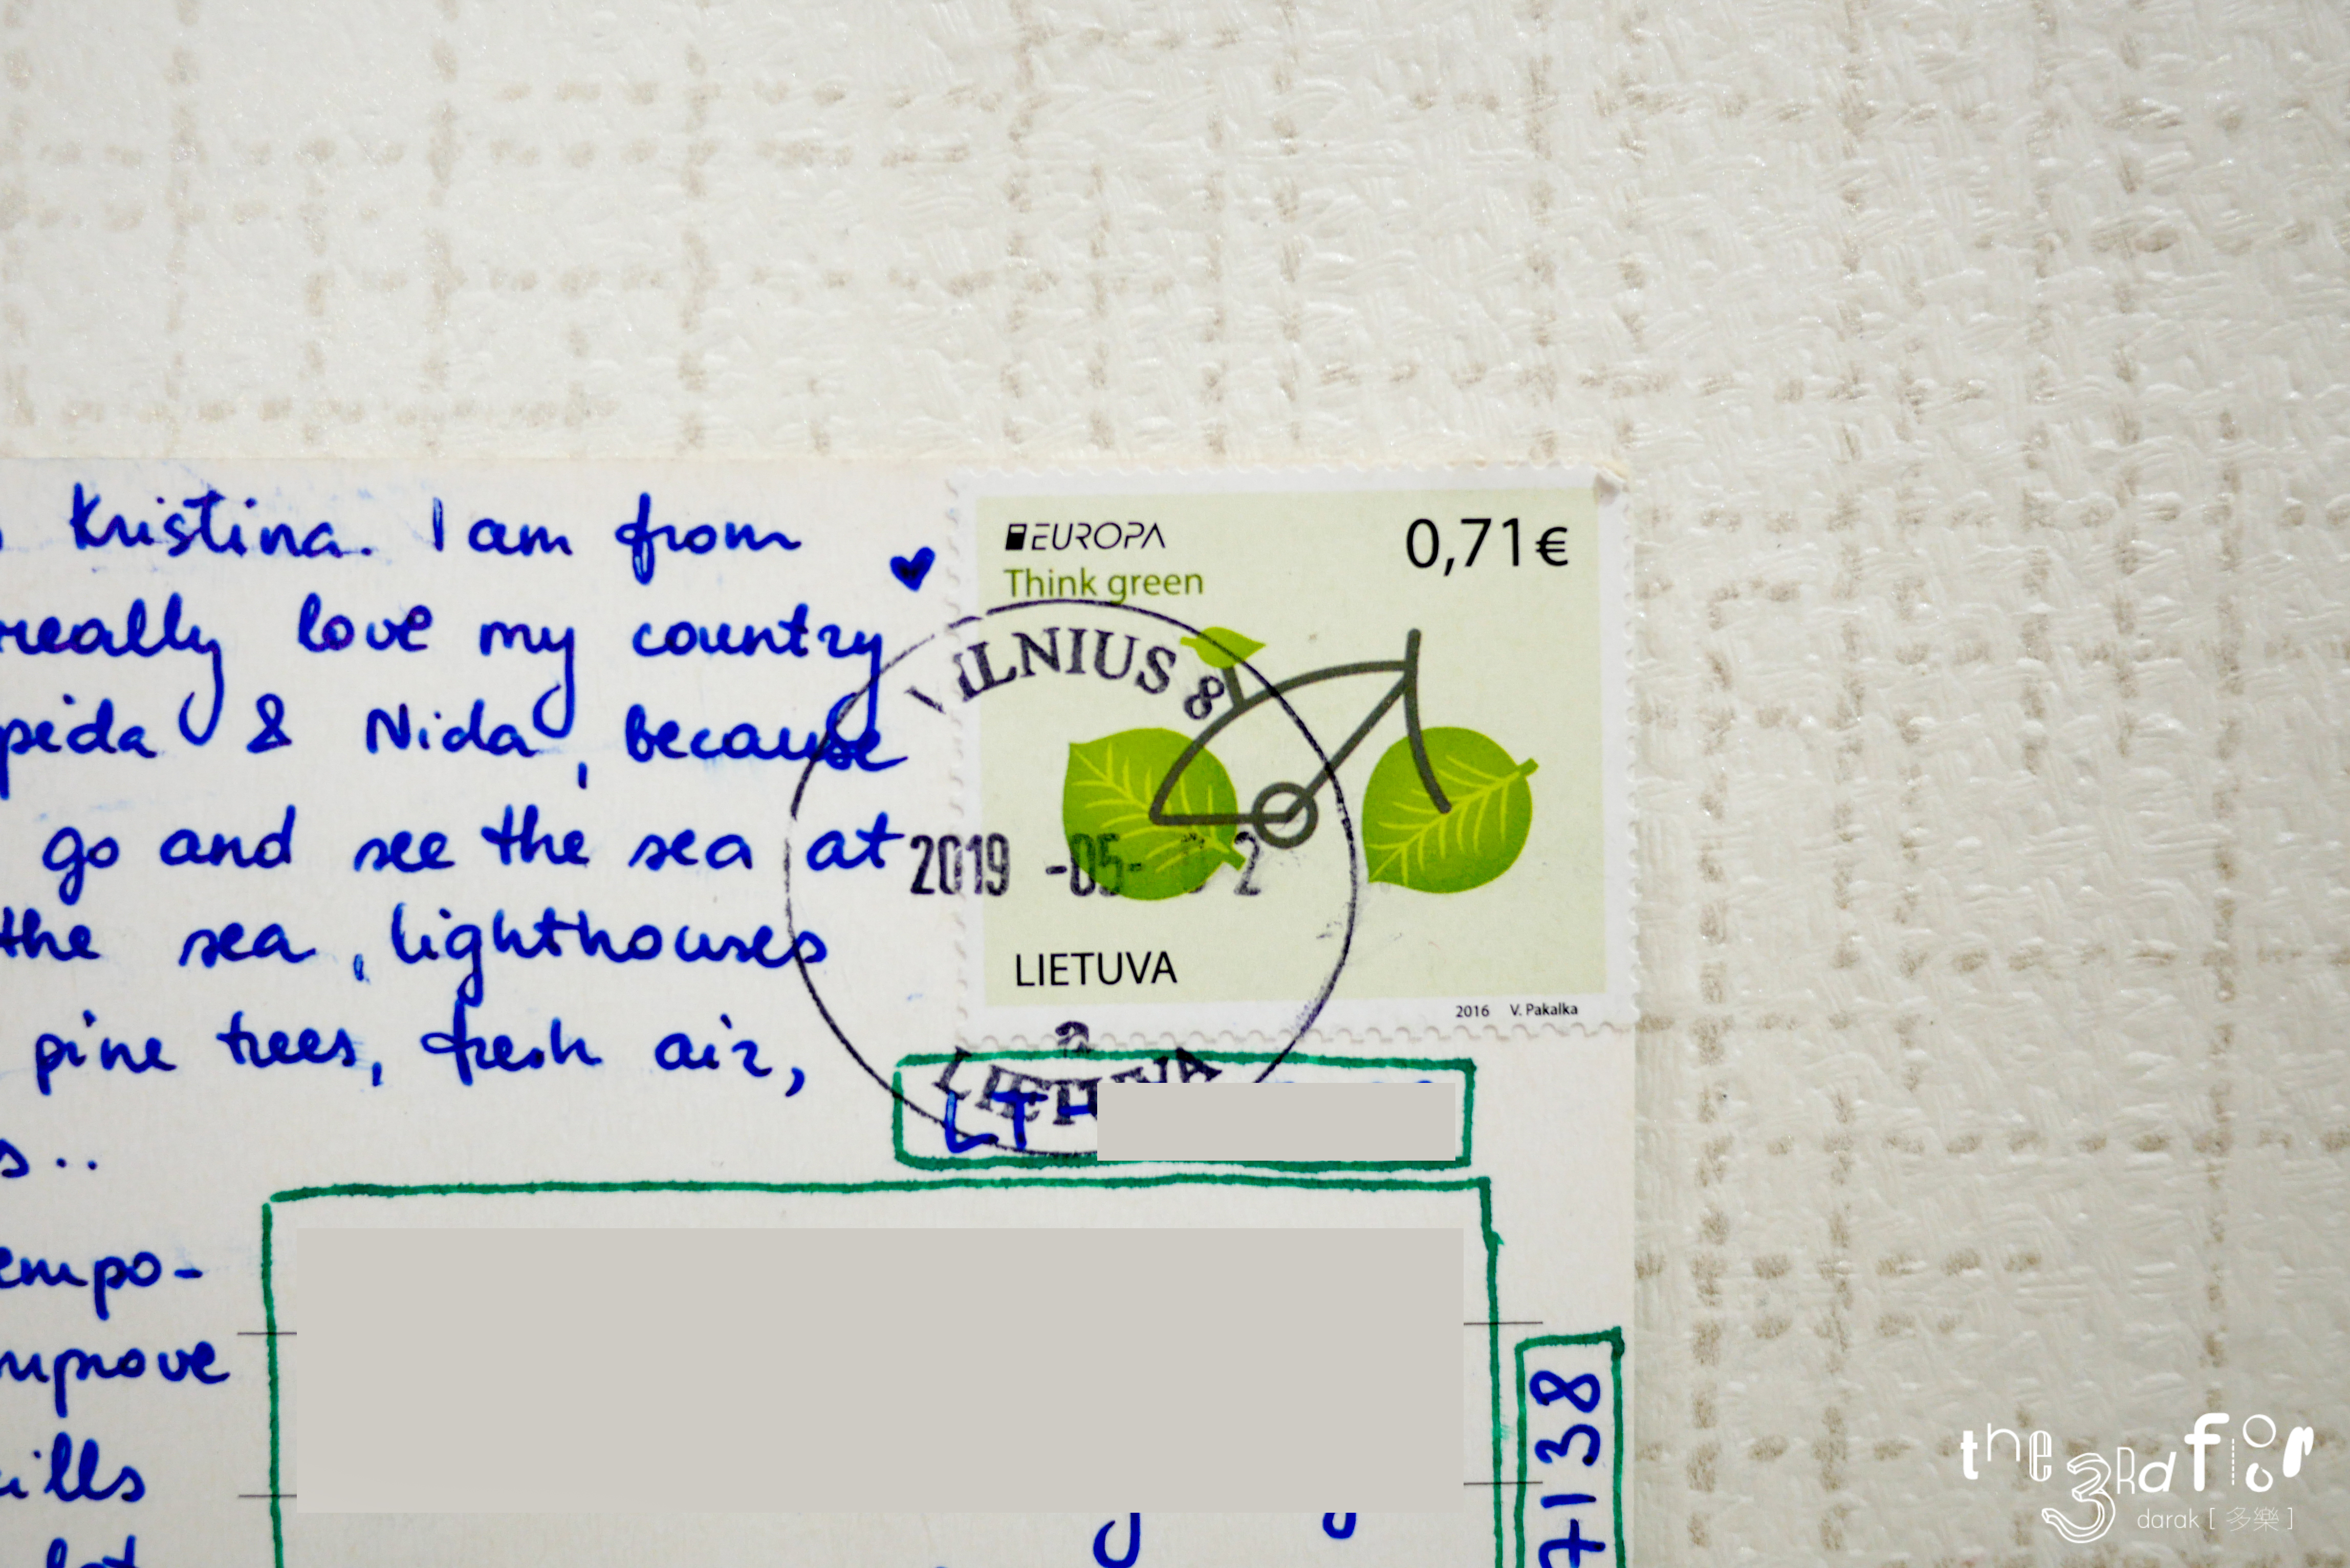 Kristina. I am from
really love my country
& Nida, because
go and see the sea at
the sea, lighthouses
pine trees, fresh air,
EUROPA
Think green
0,71€
VILNIUS 8
2019 -05- 02
LIETUVA
2016 V. Pakalka
a
LIETUVA
LT-
the 3Rd floor
darak [多樂]